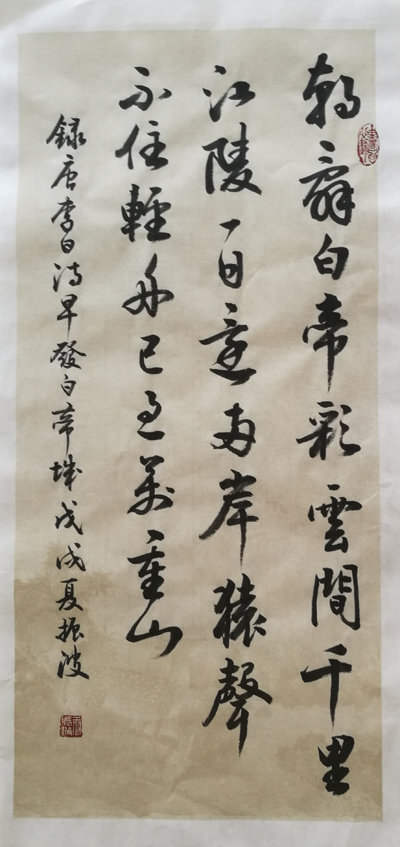 朝辭白帝彩雲間千里
江陵一日還兩岸猿聲
不住輕舟已過萬重山
錄唐李白詩早發白帝城戊戌夏振波